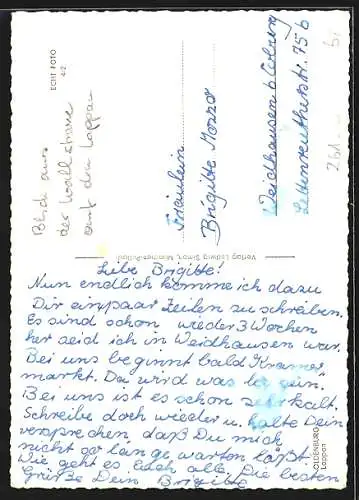 Liebe Brigitte!
Nun endlich komme ich dazu
Dir ein paar Zeilen zu schreiben.
Es sind schon wieder 3 Wochen
her seid ich in Weidhausen war.
Bei uns beginnt bald Kramer
markt. Da wird was los sein.
Bei uns ist es schon sehr kalt.
Schreibe doch wieder u. halte Dein
versprechen, daß Du mich
nicht so lange warten läßt.
Wie geht es Euch alle. Die besten
Grüße Dein Brigitte
OLDENBURG
Lappan
Verlag Ludwig Simon, München-Pullach
Fräulein
Brigitte
Weidhausen b. Coburg
75 b
ECHT FOTO
Blick aus
der Wallstrasse
auf den Lappan